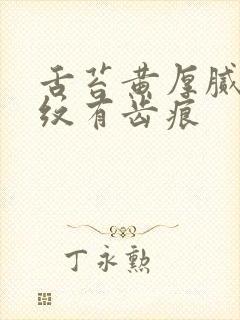 舌苔黄厚腻
纹有齿痕
丁永勲